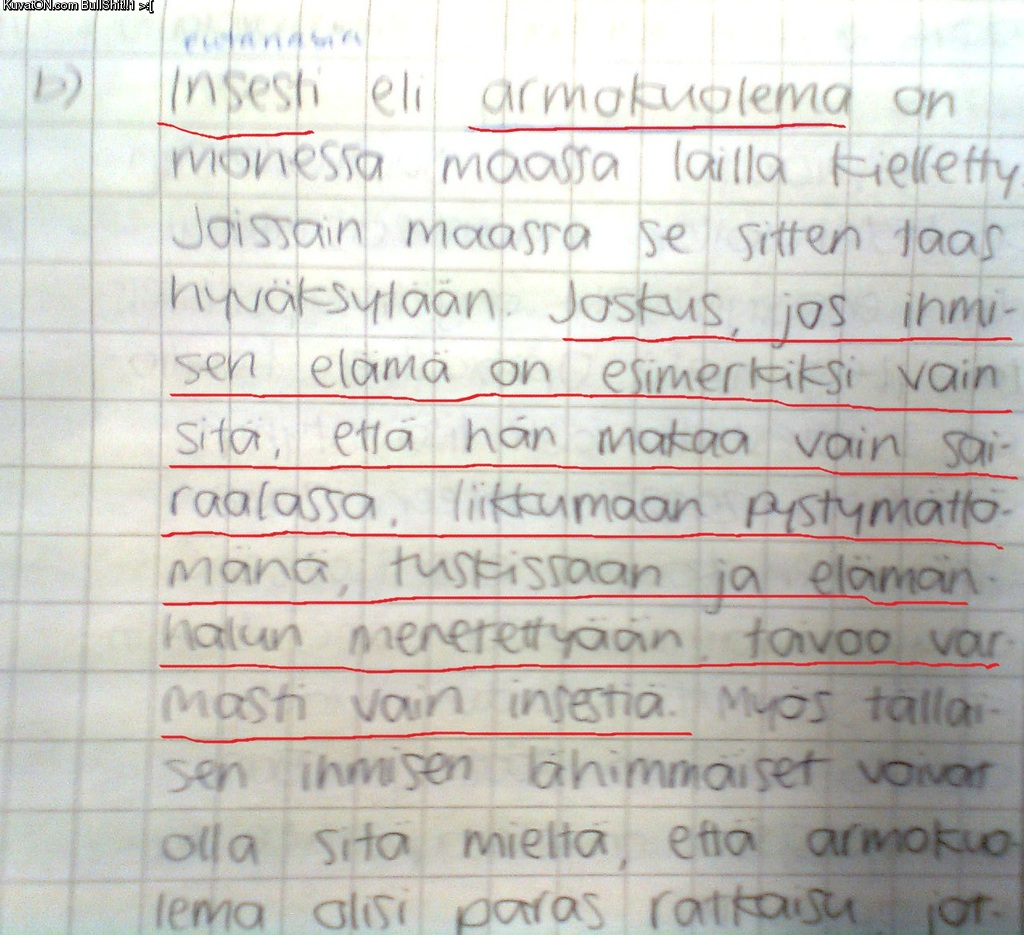 KuvatON.com BullShit!1 >:[
eutanasia
b) Insesti eli armokuolema on
monessa maassa lailla kielletty.
Joissain maassa se sitten taas
hyväksytään. Joskus, jos ihmi-
sen elämä on esimerkiksi vain
sitä, että hän makaa vain sai-
raalassa, liikkumaan pystymättö-
mänä, tuskissaan ja elämän-
halun menetettyään, toivoo var-
masti vain insestiä. Myös tällai-
sen ihmisen lähimmäiset voivat
olla sitä mieltä, että armokuo-
lema olisi paras ratkaisu, jot-